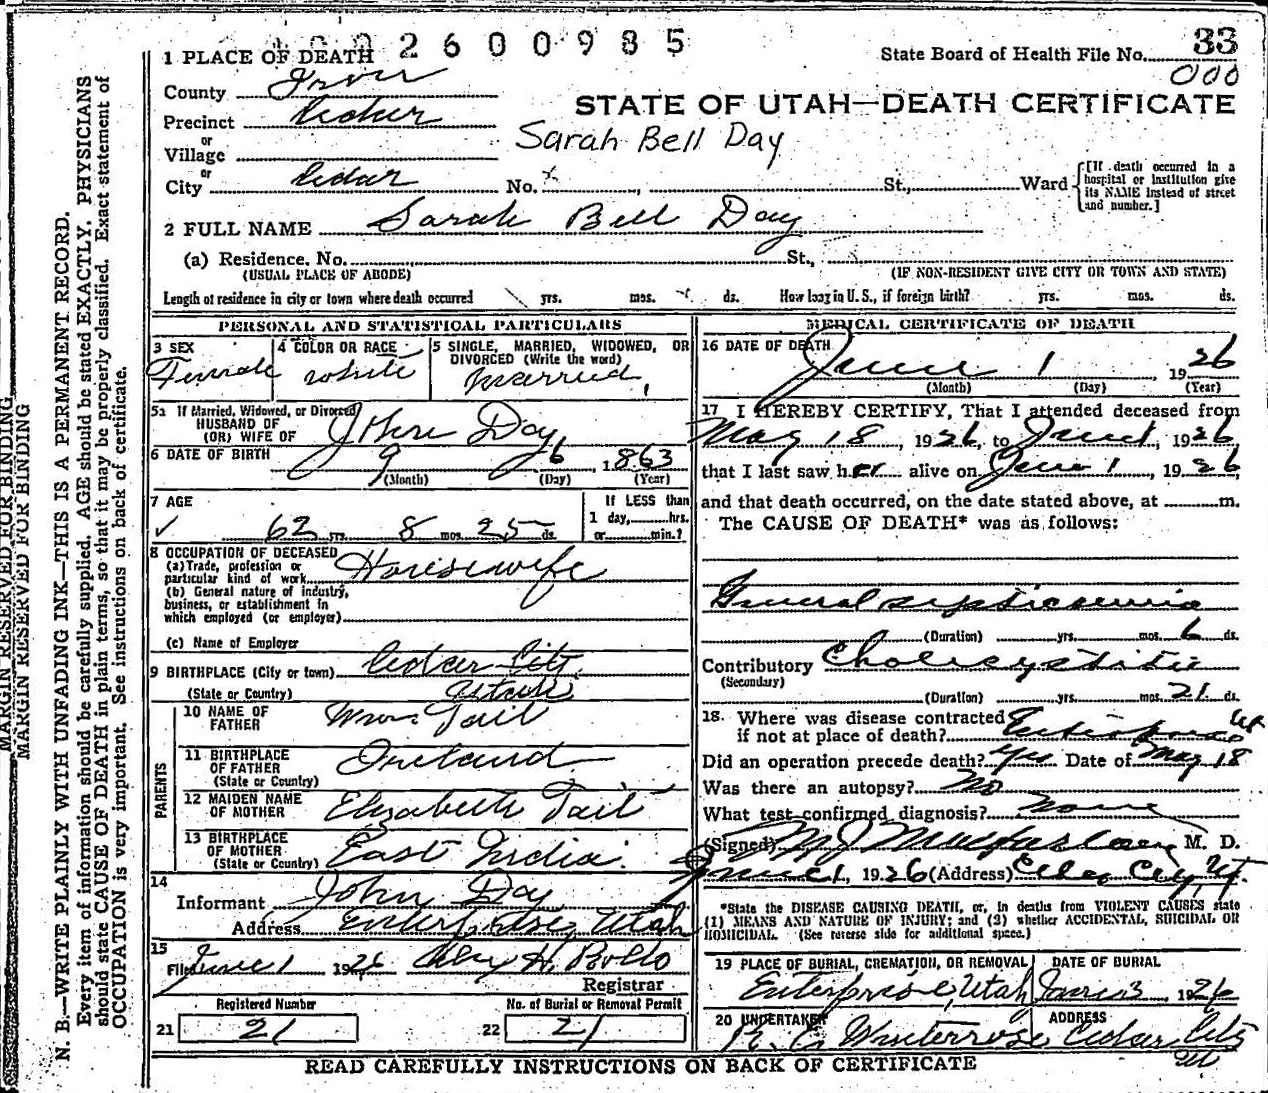 2600985
State Board of Health File No. 33
000
1 PLACE OF DEATH
County Iron
STATE OF UTAH—DEATH CERTIFICATE
Precinct Cedar
or
Village
Sarah Bell Day
or
City Cedar No. x , St., Ward
[If death occurred in a hospital or institution give its NAME instead of street and number.]
2 FULL NAME Sarah Bell Day
(a) Residence. No. St.,
(USUAL PLACE OF ABODE) (IF NON-RESIDENT GIVE CITY OR TOWN AND STATE)
Length of residence in city or town where death occurred yrs. mos. ds. How long in U. S., if foreign birth? yrs. mos. ds.
PERSONAL AND STATISTICAL PARTICULARS
3 SEX
Female
4 COLOR OR RACE
white
5 SINGLE, MARRIED, WIDOWED, OR DIVORCED (Write the word)
married
5a If Married, Widowed, or Divorced
HUSBAND OF
(OR) WIFE OF John Day
6 DATE OF BIRTH 9 6, 1863
(Month) (Day) (Year)
7 AGE
62 yrs. 8 mos. 25 ds.
If LESS than
1 day, hrs.
or min.?
8 OCCUPATION OF DECEASED
(a) Trade, profession or
particular kind of work Housewife
(b) General nature of industry,
business, or establishment in
which employed (or employer)
(c) Name of Employer
9 BIRTHPLACE (City or town) Cedar City
(State or Country) Utah
PARENTS
10 NAME OF FATHER Wm Tait
11 BIRTHPLACE OF FATHER (State or Country) Ireland
12 MAIDEN NAME OF MOTHER Elizabeth Tait
13 BIRTHPLACE OF MOTHER (State or Country) East India
14
Informant John Day
Address Enterprise, Utah
15
Filed June 1 1926
Registrar
Registered Number
21 21
No. of Burial or Removal Permit
22 21
MEDICAL CERTIFICATE OF DEATH
16 DATE OF DEATH
June 1, 1926
(Month) (Day) (Year)
17 I HEREBY CERTIFY, That I attended deceased from
May 18, 1926, to June 1, 1926,
that I last saw her alive on June 1, 1926,
and that death occurred, on the date stated above, at m.
The CAUSE OF DEATH* was as follows:
General septicaemia
(Duration) yrs. mos. 6 ds.
Contributory Cholecystitis
(Secondary)
(Duration) yrs. mos. 21 ds.
18. Where was disease contracted
if not at place of death? Enterprise Ut
Did an operation precede death? Yes Date of May 18
Was there an autopsy? No
What test confirmed diagnosis? None
(Signed) M J Macfarlane, M. D.
June 1, 1926 (Address) Cedar City, Ut.
*State the DISEASE CAUSING DEATH, or, in deaths from VIOLENT CAUSES state
(1) MEANS AND NATURE OF INJURY; and (2) whether ACCIDENTAL, SUICIDAL OR
HOMICIDAL. (See reverse side for additional space.)
19 PLACE OF BURIAL, CREMATION, OR REMOVAL
Enterprise, Utah
DATE OF BURIAL
June 3, 1926
20 UNDERTAKER
Winterrose
ADDRESS
Cedar City
Ut
READ CAREFULLY INSTRUCTIONS ON BACK OF CERTIFICATE
MARGIN RESERVED FOR BINDING
MARGIN RESERVED FOR BINDING
N. B.—WRITE PLAINLY WITH UNFADING INK—THIS IS A PERMANENT RECORD.
Every item of information should be carefully supplied. AGE should be stated EXACTLY. PHYSICIANS
should state CAUSE OF DEATH in plain terms, so that it may be properly classified. Exact statement of
OCCUPATION is very important. See instructions on back of certificate.